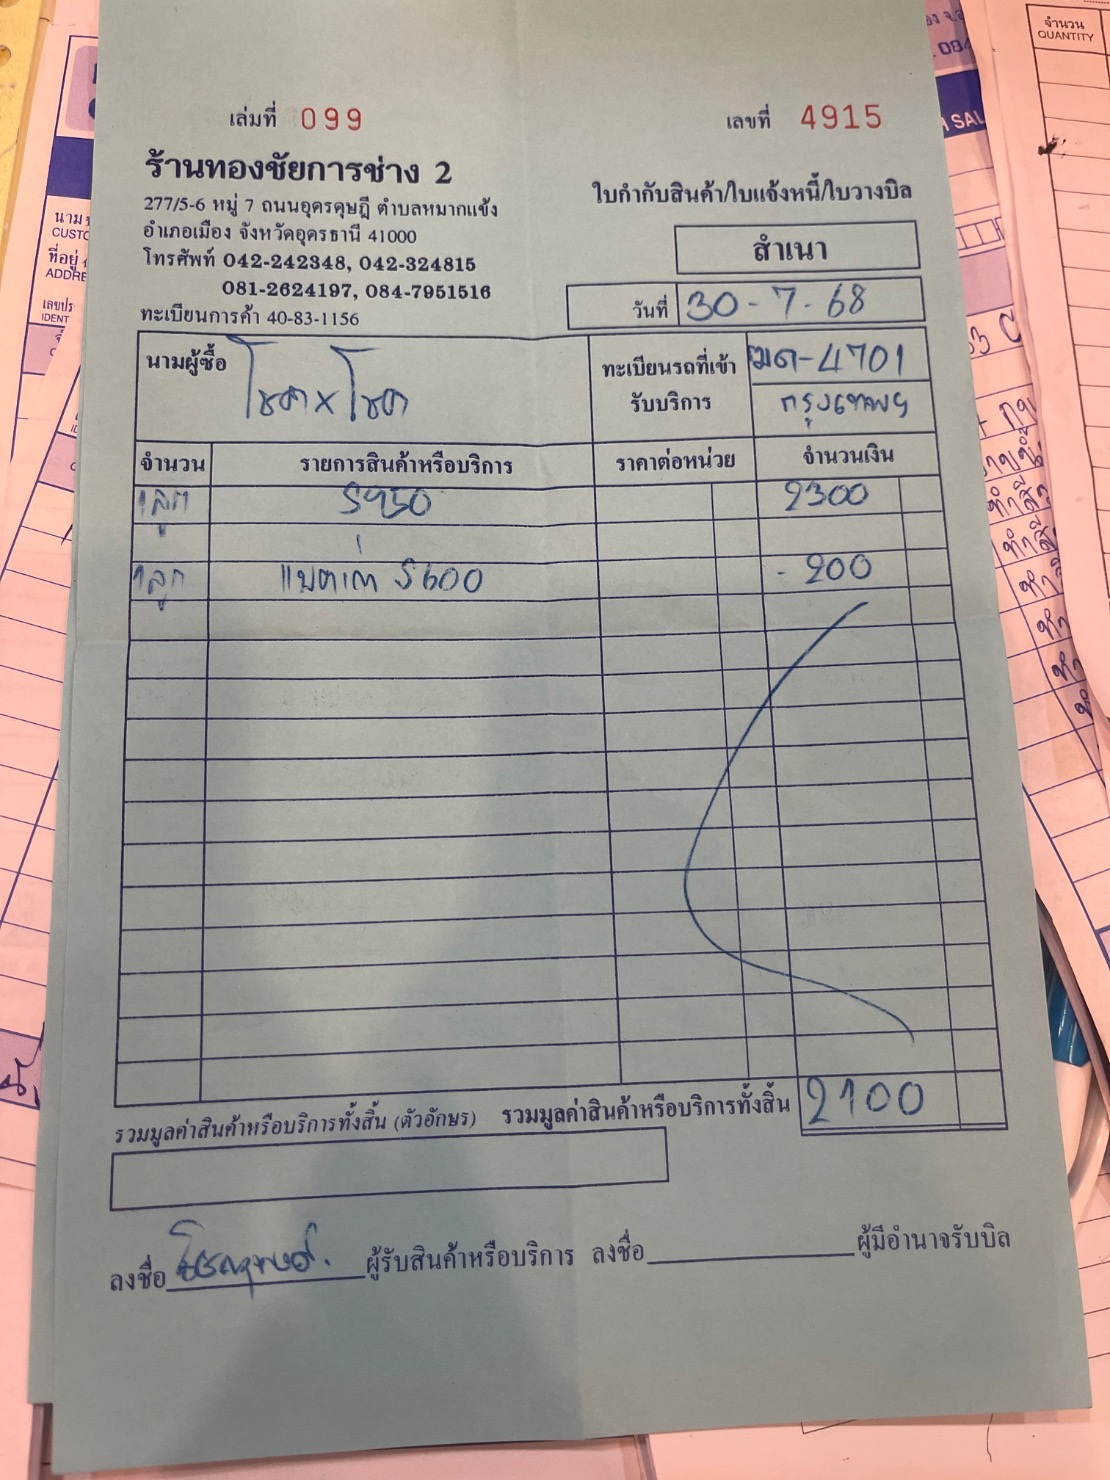 เล่มที่ 099
เลขที่ 4915
ร้านทองชัยการช่าง 2
277/5-6 หมู่ 7 ถนนอุดรดุษฎี ตำบลหมากแข้ง
อำเภอเมือง จังหวัดอุดรธานี 41000
โทรศัพท์ 042-242348, 042-324815
081-2624197, 084-7951516
ทะเบียนการค้า 40-83-1156
ใบกำกับสินค้า/ใบแจ้งหนี้/ใบวางบิล
สำเนา
วันที่ 30-7-68
นามผู้ซื้อ โชค x โชค
ทะเบียนรถที่เข้ารับบริการ
-4701
กรุงเทพฯ
จำนวน รายการสินค้าหรือบริการ ราคาต่อหน่วย จำนวนเงิน
1 ลูก S950 2300
1 ลูก แบตเก่า S600 - 200
รวมมูลค่าสินค้าหรือบริการทั้งสิ้น (ตัวอักษร) รวมมูลค่าสินค้าหรือบริการทั้งสิ้น 2100
ลงชื่อ ผู้รับสินค้าหรือบริการ ลงชื่อ ผู้มีอำนาจรับบิล
จำนวน
QUANTITY
นาม
CUSTO
ที่อยู่
ADDRE
IDENT